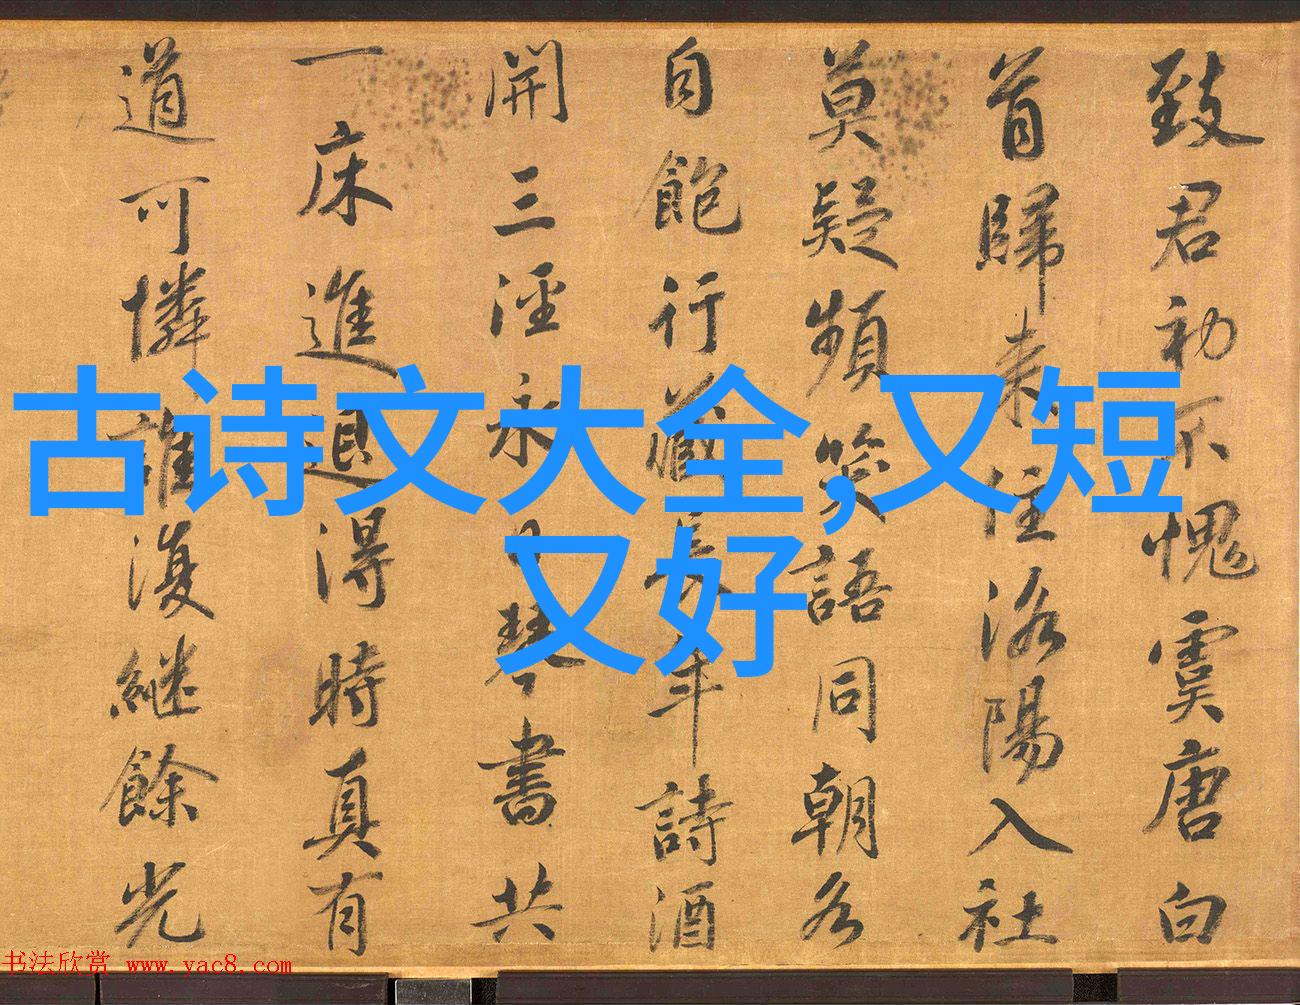 致君初不愧虞唐白
首歸来住洛陽入社
莫疑頻笑語同朝各
自飽行藏長年詩酒
開三涇永日琴書共
一床進退得時真有
道可憐誰復継餘光
古诗文大全,又短
又好
书法欣赏 www.yac8.com